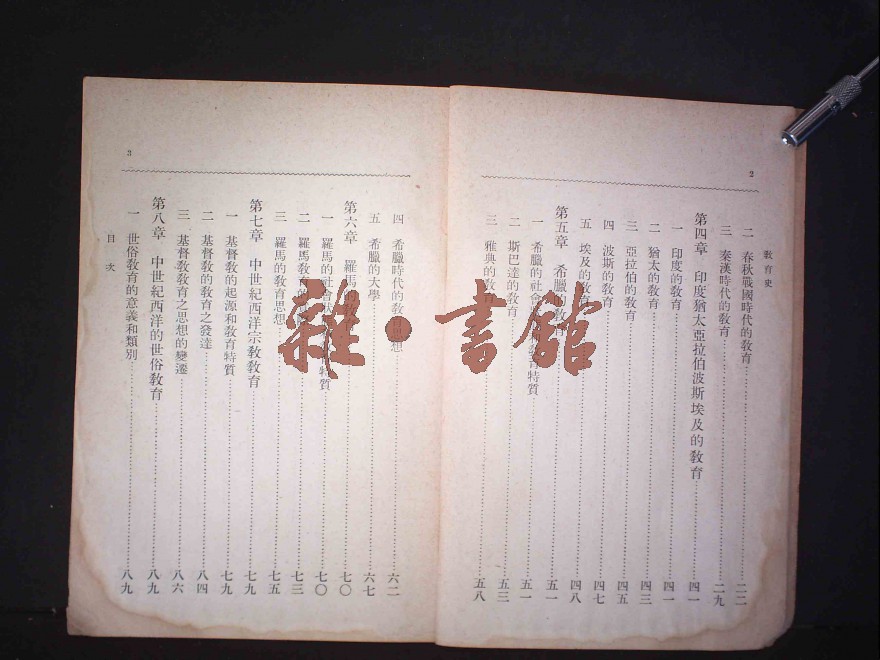 2
教育史
二 春秋戰國時代的教育 二二
三 秦漢時代的教育 二九
第四章 印度猶太亞拉伯波斯埃及的教育 四一
一 印度的教育 四一
二 猶太的教育 四三
三 亞拉伯的教育 四五
四 波斯的教育 四七
五 埃及的教育 四八
第五章 希臘的教 五一
一 希臘的社會 特質 五一
二 斯巴達的教育 五三
三 雅典的教育 五八
3
四 希臘時代的教育思想 六二
五 希臘的大學 六七
第六章 羅馬的 七〇
一 羅馬的社會 特質 七〇
二 羅馬教育的 七三
三 羅馬的教育思想 七五
第七章 中世紀西洋宗教教育 七九
一 基督教的起源和教育特質 七九
二 基督教的教育之發達 八四
三 基督教教育之思想的變遷 八六
第八章 中世紀西洋的世俗教育 八九
一 世俗教育的意義和類別 八九
目次
雜·書館